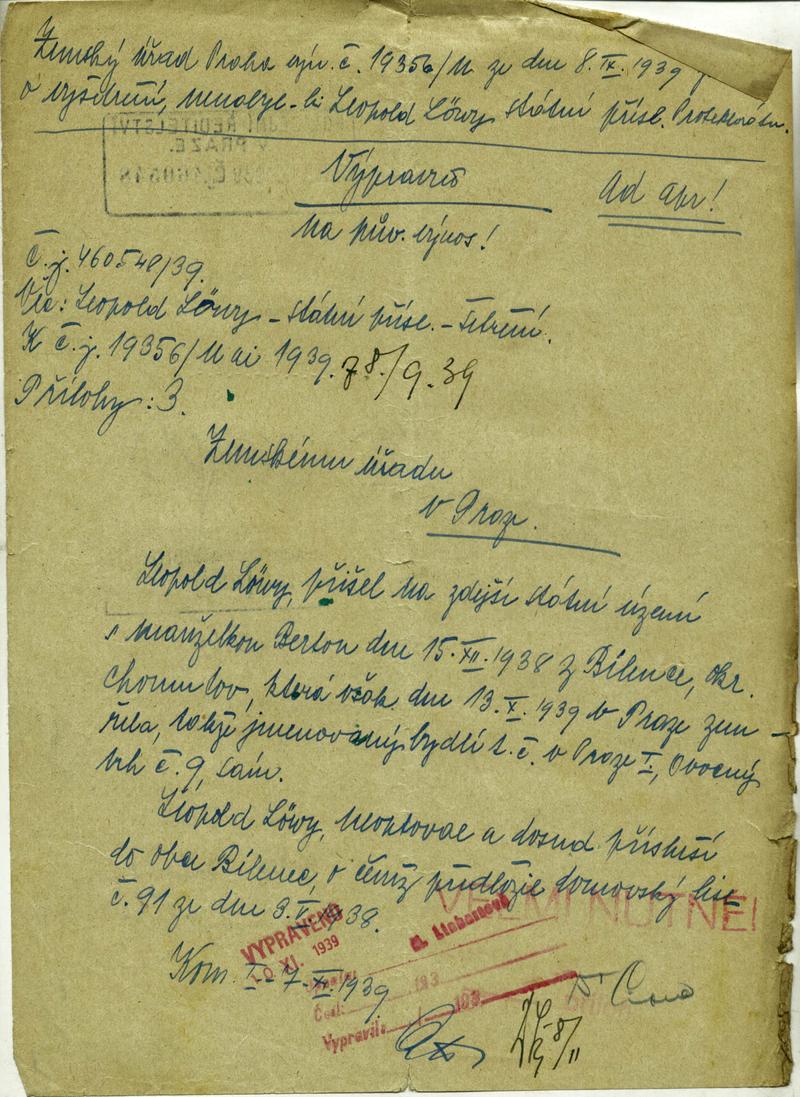 Zemský úřad Praha výn. č. 19356/11 ze dne 8. IX. 1939
o vyšetření, nenabyl-li Leopold Löwy státní přísl. Protektorátu.
ŘEDITELSTVÍ
V PRAZE.
Výpravně
Ad apr!
na pův. výnos!
Č. j. 460548/39.
Věc: Leopold Löwy – státní přísl. – šetření.
K č. j. 19356/11 ai 1939. z 8./9. 39
Přílohy: 3.
Zemskému úřadu
v Praze.
Leopold Löwy, přišel na zdejší státní území
s manželkou Bertou dne 15. XII. 1938 z Bílence, okr.
Chomutov, která však dne 13. X. 1939 v Praze zem-
řela, takže jmenovaný bydlí t. č. v Praze I, Ovocný
trh č. 9, sám.
Leopold Löwy, neoptoval a dosud přísluší
do obce Bílenec, o čemž předložil domovský list
č. 91 ze dne 3. V. 1938.
VELMI NUTNÉ!
VYPRAVENO
10 XI. 1939
Kom. I - 7. XI. 1939
Část: 193
Vypravil: 193
8/11